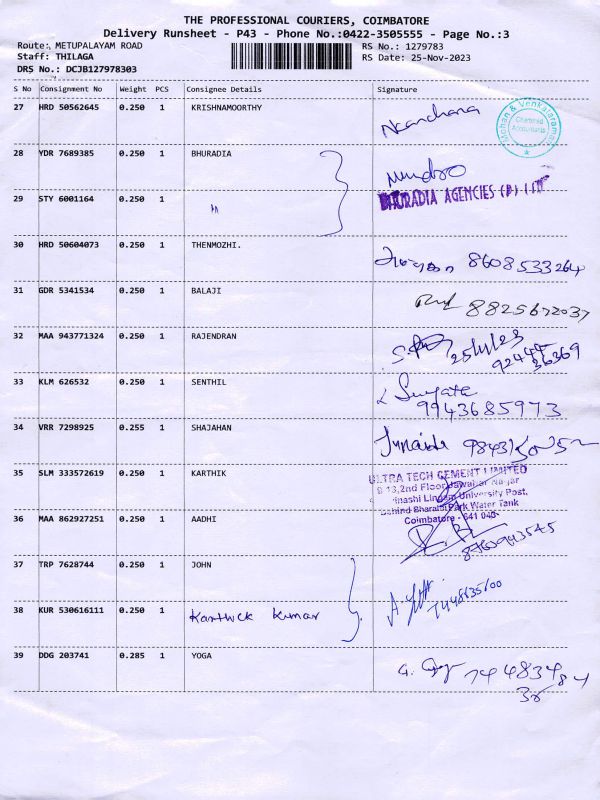 THE PROFESSIONAL COURIERS, COIMBATORE
Delivery Runsheet - P43 - Phone No.:0422-3505555 - Page No.:3
Route: METUPALAYAM ROAD RS No.: 1279783
Staff: THILAGA RS Date: 25-Nov-2023
DRS No.: DCJB127978303
S No Consignment No Weight PCS Consignee Details Signature
27 HRD 50562645 0.250 1 KRISHNAMOORTHY
Mohan & Venkataraman
Chartered
Accountants
28 YDR 7689385 0.250 1 BHURADIA
29 STY 6001164 0.250 1 "
BHURADIA AGENCIES (P) LTD
30 HRD 50604073 0.250 1 THENMOZHI. 8608533264
31 GDR 5341534 0.250 1 BALAJI 8825672037
32 MAA 943771324 0.250 1 RAJENDRAN 25/11/23
92444
36369
33 KLM 626532 0.250 1 SENTHIL
9943685973
34 VRR 7298925 0.255 1 SHAJAHAN
35 SLM 333572619 0.250 1 KARTHIK
ULTRA TECH CEMENT LIMITED
2nd Floor Jawahar Nagar
University Post,
Behind Bharathi Park Water Tank
Coimbatore - 641 043
36 MAA 862927251 0.250 1 AADHI
37 TRP 7628744 0.250 1 JOHN
38 KUR 530616111 0.250 1 Karthick Kumar
39 DDG 203741 0.285 1 YOGA